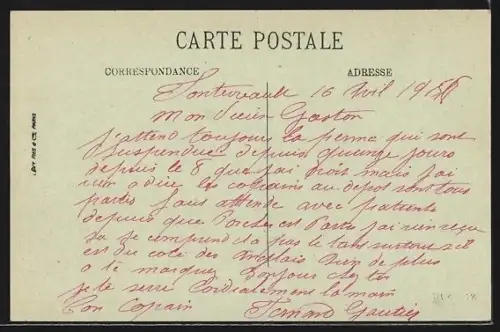 CARTE POSTALE
CORRESPONDANCE
ADRESSE
Fontevrault 16 Avril 19
Mon vieux Gaston
j'attend toujours la perme qui sont
suspendue depuis quinze jours
depuis le 8 que j'ai droit mais j'ai
rien a dire les copains au depot sont tous
partis faut attendre avec patience
depuis que Porcher est Partis j'ai rien reçu
sa se comprend il a pas le tant surtout s'il
est du coté des Anglais Rien de plus
a te marquer Bonjour chez toi
je te serre Cordialement la main
Ton Copain Fernand Gautier
LEVY FILS & CIE, PARIS